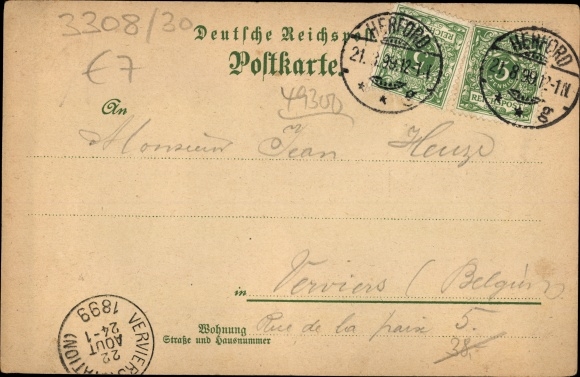 3308/30
€7
Deutsche Reichspost
Postkarte
49300
HERFORD
21.8.99.12-1N.
* * g
HERFORD
21.8.99.12-1N.
* * g
REICHSPOST
5
An
Monsieur Jean Heuze
in Verviers (Belgien)
Wohnung
Straße und Hausnummer
Rue de la paix 5.
38.
VERVIERS (STATION)
22
AOUT
24-1
1899